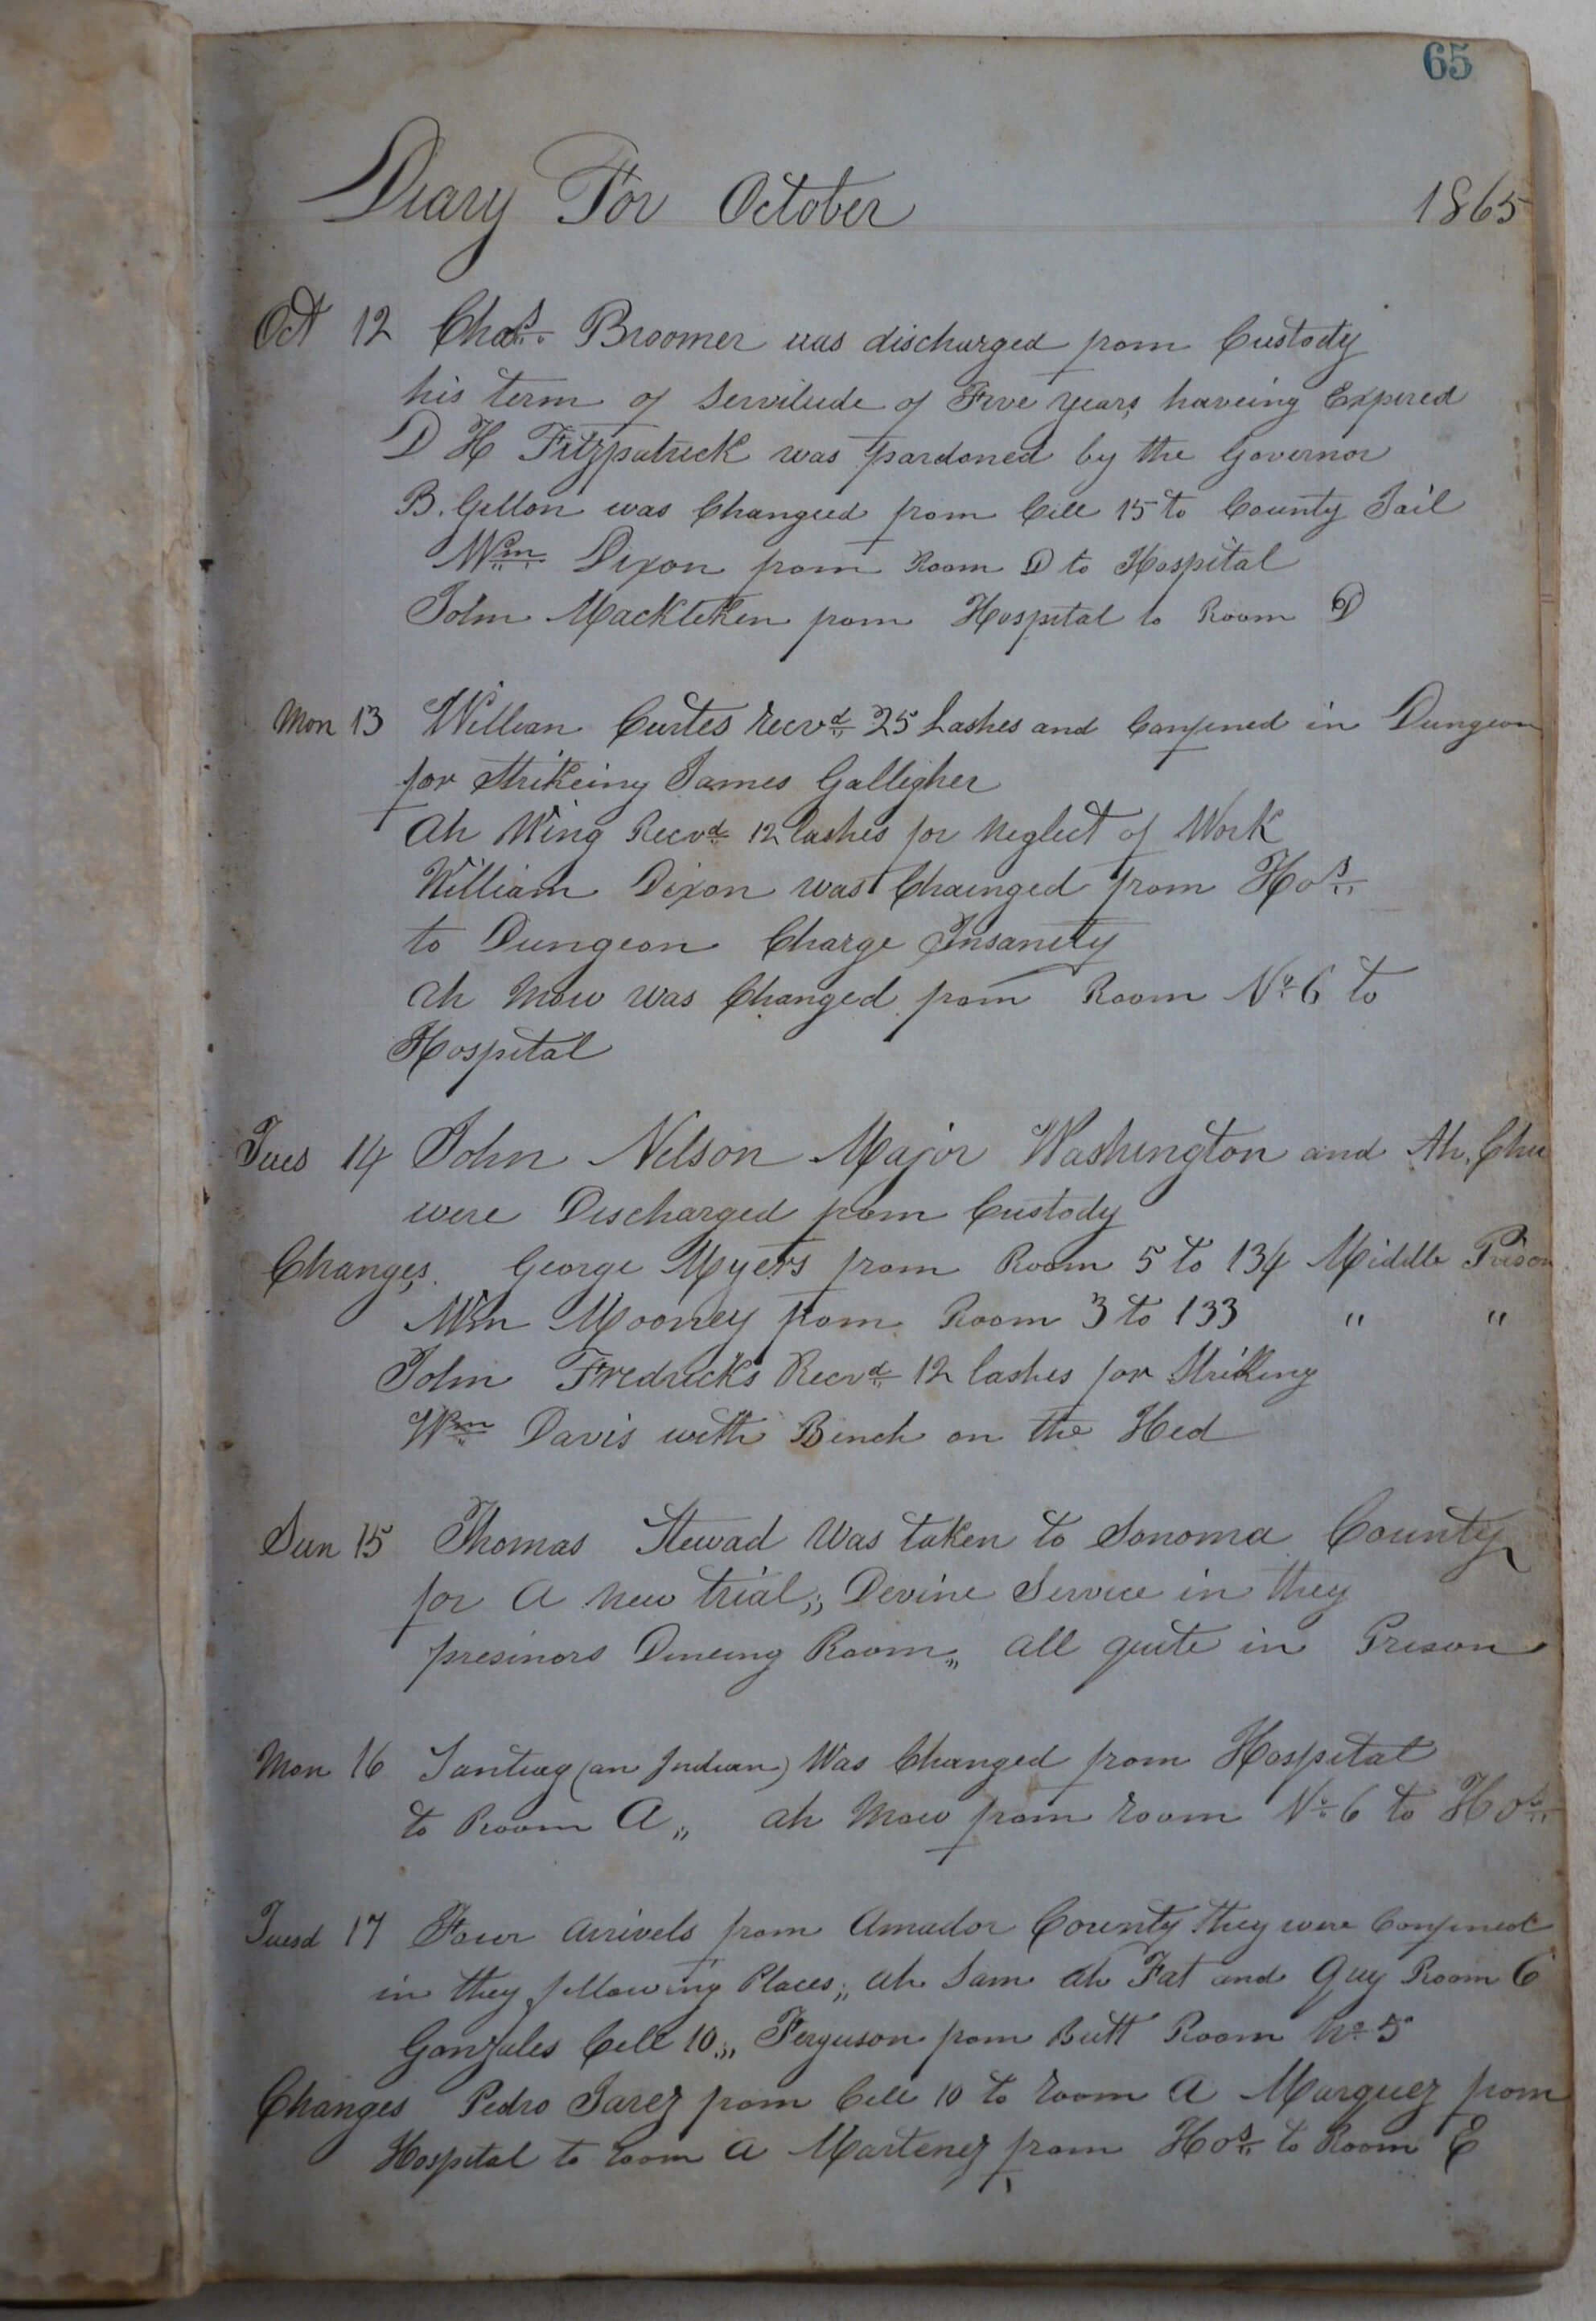 65
Diary For October 1865
Oct 12 Chas. Broomer was discharged from Custody
his term of servitude of Five years haveing Expired
D H Fitzpatrick was pardoned by the Governor
B. Gillon was Changed from Cell 15 to County Jail
Wm Dixon from Room D to Hospital
John Mackleken from Hospital to Room D
Mon 13 William Curtes recvd 25 Lashes and Confined in Dungeon
for Strikeing James Galligher
Ah Wing Recvd 12 lashes for Neglect of Work
William Dixon was Chainged from Hos
to Dungeon Charge Insanity
Ah Mow was Changed from Room No 6 to
Hospital
Tues 14 John Nelson Major Washington and Ah. Chu
were Discharged from Custody
Changes. George Myers from Room 5 to 134 Middle Prison
Wm Mooney from Room 3 to 133 " "
John Fredricks Recvd 12 lashes for Striking
Wm Davis with Bench on the Hed
Sun 15 Thomas Stewad Was taken to Sonoma County
for A New trial,, Devine Service in they
presinors Dineing Room,, all quite in Prison
Mon 16 Santiag (an Indian) Was Changed from Hospital
to Room A,, Ah Mow from room No 6 to Hos
Tuesd 17 Four arrivels from Amador County they were Confined
in they following Places,, Ah Sam Ah Fat and Guy Room 6
Gonzales Cell 10,, Ferguson from Butt Room No 5
Changes Pedro Jarez from Cell 10 to room A Marquez from
Hospital to room A Martenez from Hos to Room E